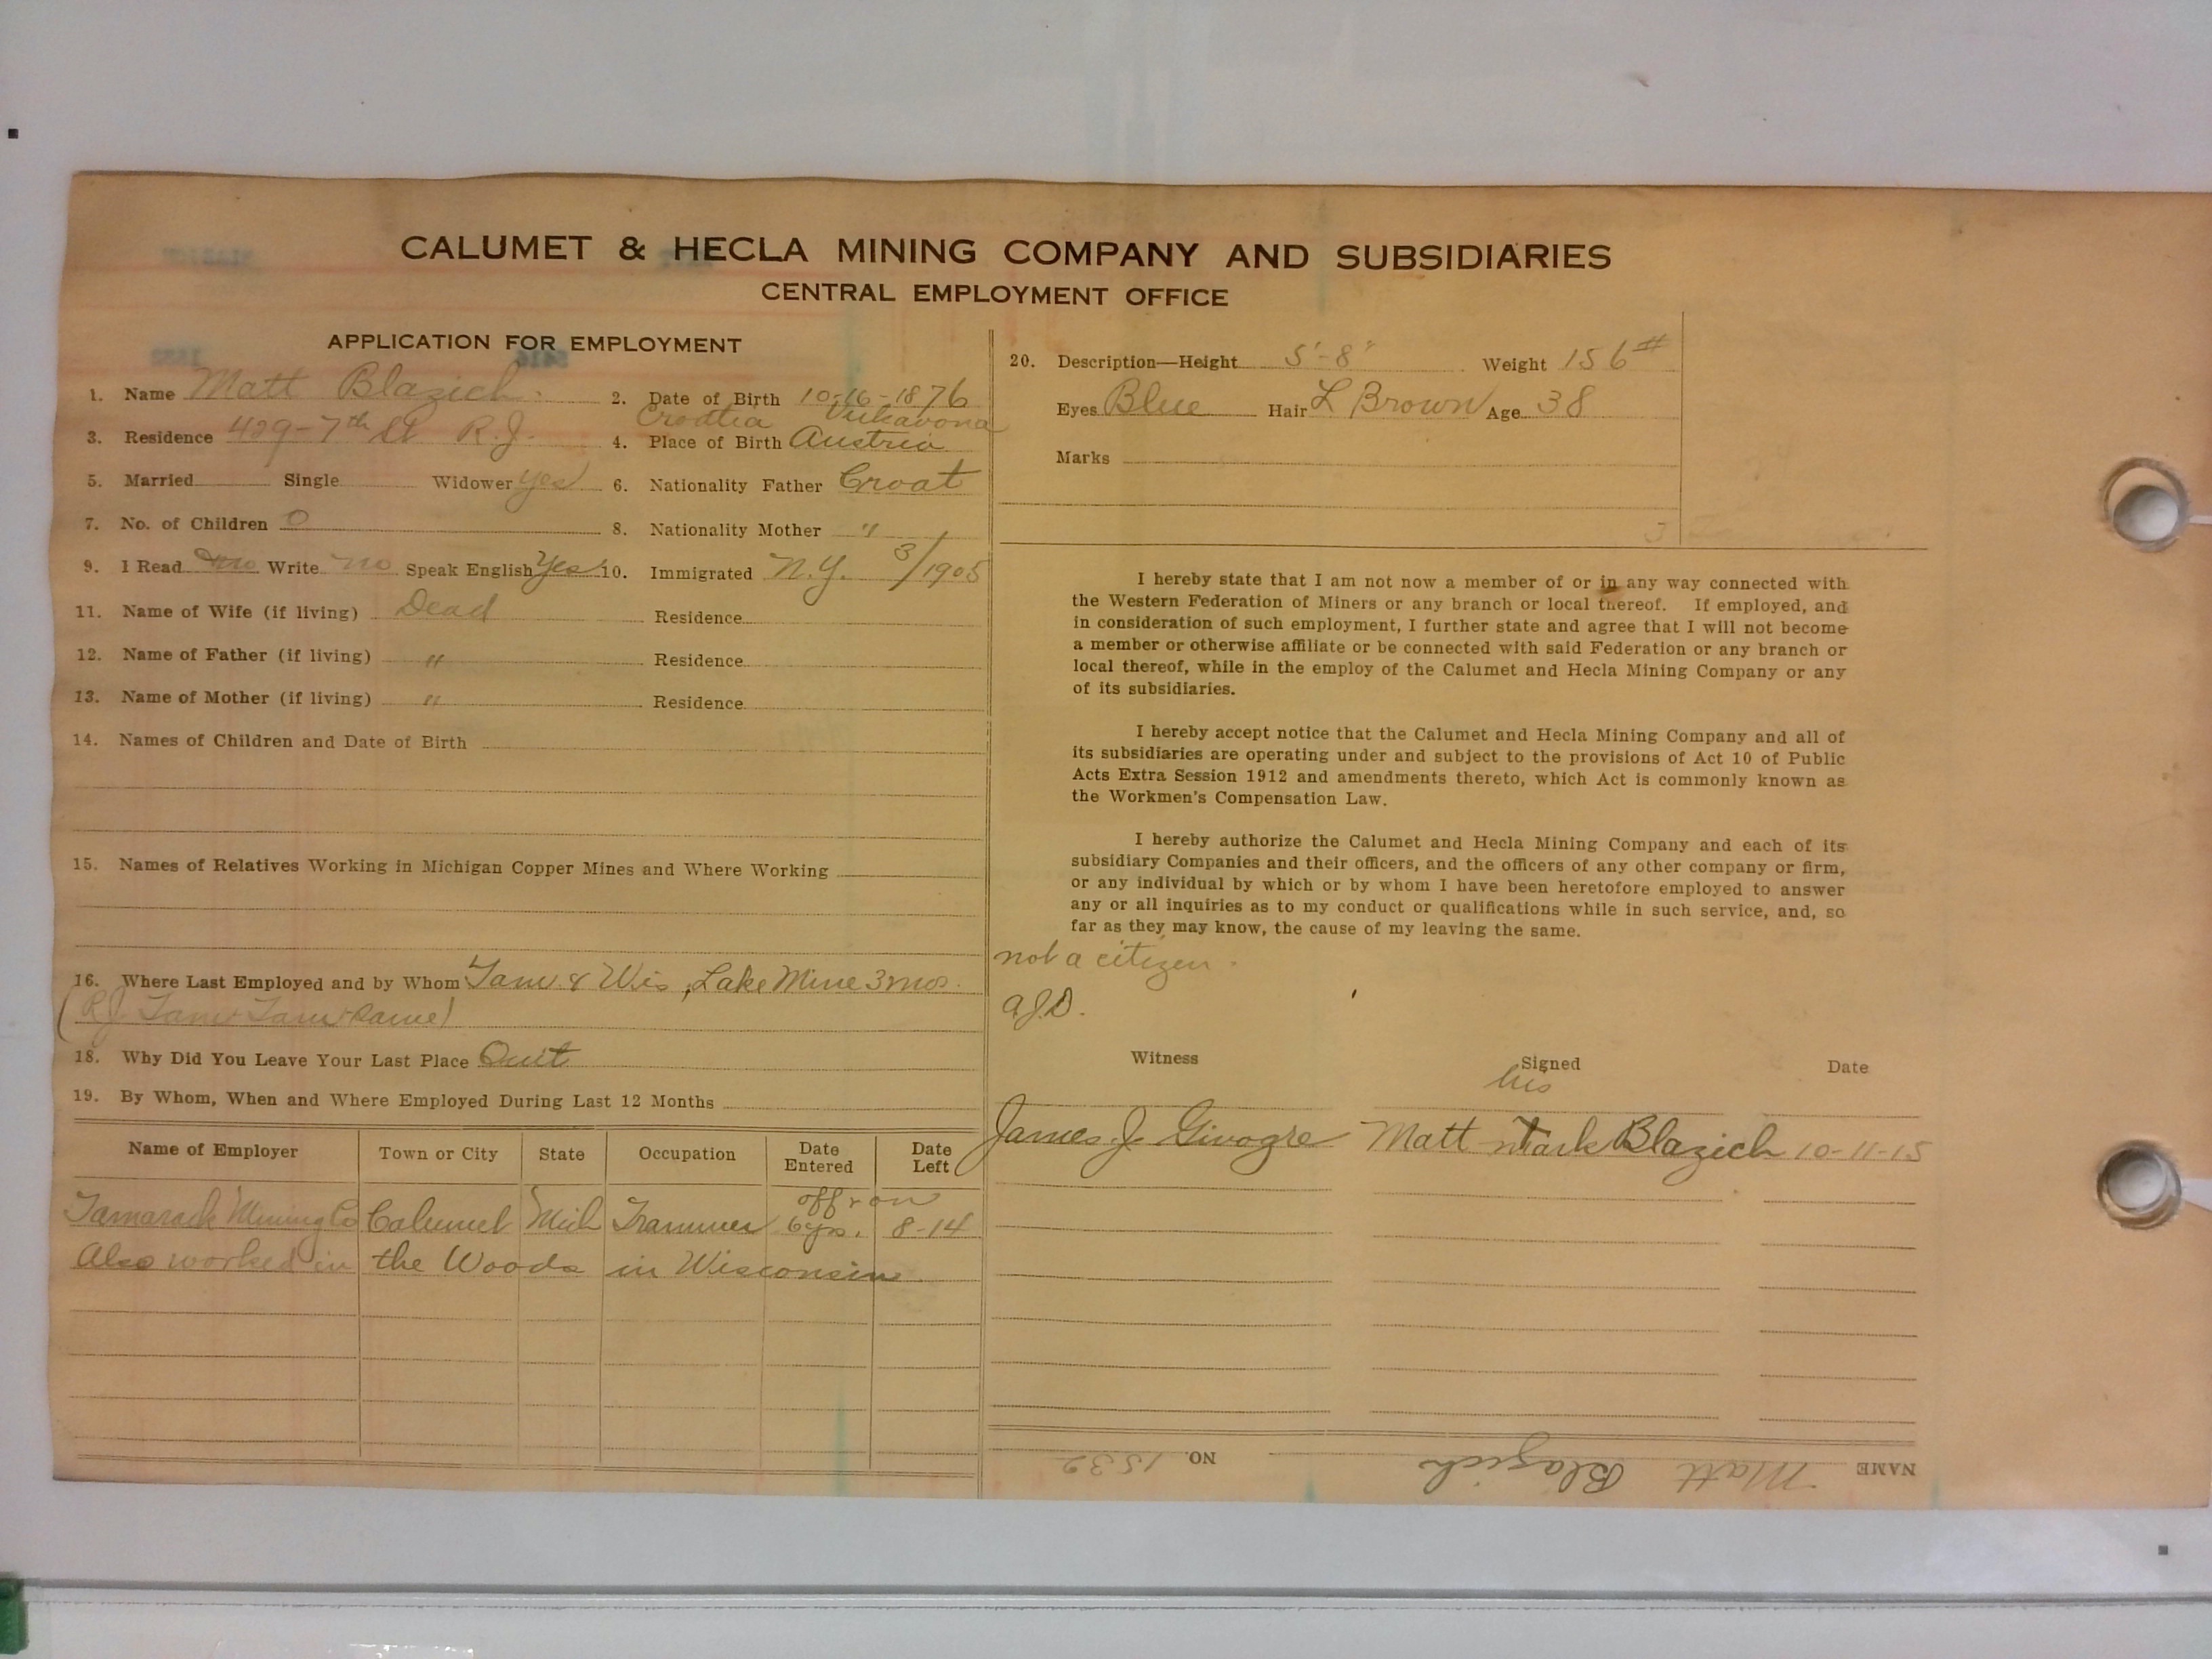 CALUMET & HECLA MINING COMPANY AND SUBSIDIARIES
CENTRAL EMPLOYMENT OFFICE
APPLICATION FOR EMPLOYMENT
1. Name Matt Blazich. 2. Date of Birth 10-16-1876
Croatia
3. Residence 429-7th St R.J. 4. Place of Birth Austria
5. Married Single Widower yes 6. Nationality Father Croat
7. No. of Children 0 8. Nationality Mother "
9. I Read no Write no Speak English Yes 10. Immigrated N.Y. 3/1905
11. Name of Wife (if living) Dead Residence
12. Name of Father (if living) " Residence
13. Name of Mother (if living) " Residence
14. Names of Children and Date of Birth
15. Names of Relatives Working in Michigan Copper Mines and Where Working
16. Where Last Employed and by Whom Tam. & Wis, Lake Mine 3 mos.
(R.J. Tam Tam same)
18. Why Did You Leave Your Last Place Quit
19. By Whom, When and Where Employed During Last 12 Months
Name of Employer Town or City State Occupation Date Entered Date Left
off & on
Tamarack Mining Co Calumet Mich Trammer 6 yrs. 8-14
Also worked in the Woods in Wisconsin.
20. Description—Height 5'-8" Weight 156#
Eyes Blue Hair L Brown Age 38
Marks
3
I hereby state that I am not now a member of or in any way connected with
the Western Federation of Miners or any branch or local thereof. If employed, and
in consideration of such employment, I further state and agree that I will not become
a member or otherwise affiliate or be connected with said Federation or any branch or
local thereof, while in the employ of the Calumet and Hecla Mining Company or any
of its subsidiaries.
I hereby accept notice that the Calumet and Hecla Mining Company and all of
its subsidiaries are operating under and subject to the provisions of Act 10 of Public
Acts Extra Session 1912 and amendments thereto, which Act is commonly known as
the Workmen's Compensation Law.
I hereby authorize the Calumet and Hecla Mining Company and each of its
subsidiary Companies and their officers, and the officers of any other company or firm,
or any individual by which or by whom I have been heretofore employed to answer
any or all inquiries as to my conduct or qualifications while in such service, and, so
far as they may know, the cause of my leaving the same.
not a citizen.
A.J.D.
Witness Signed Date
his
James J. Givogre Matt mark Blazich 10-11-15
NAME Matt Blazich NO. 1532